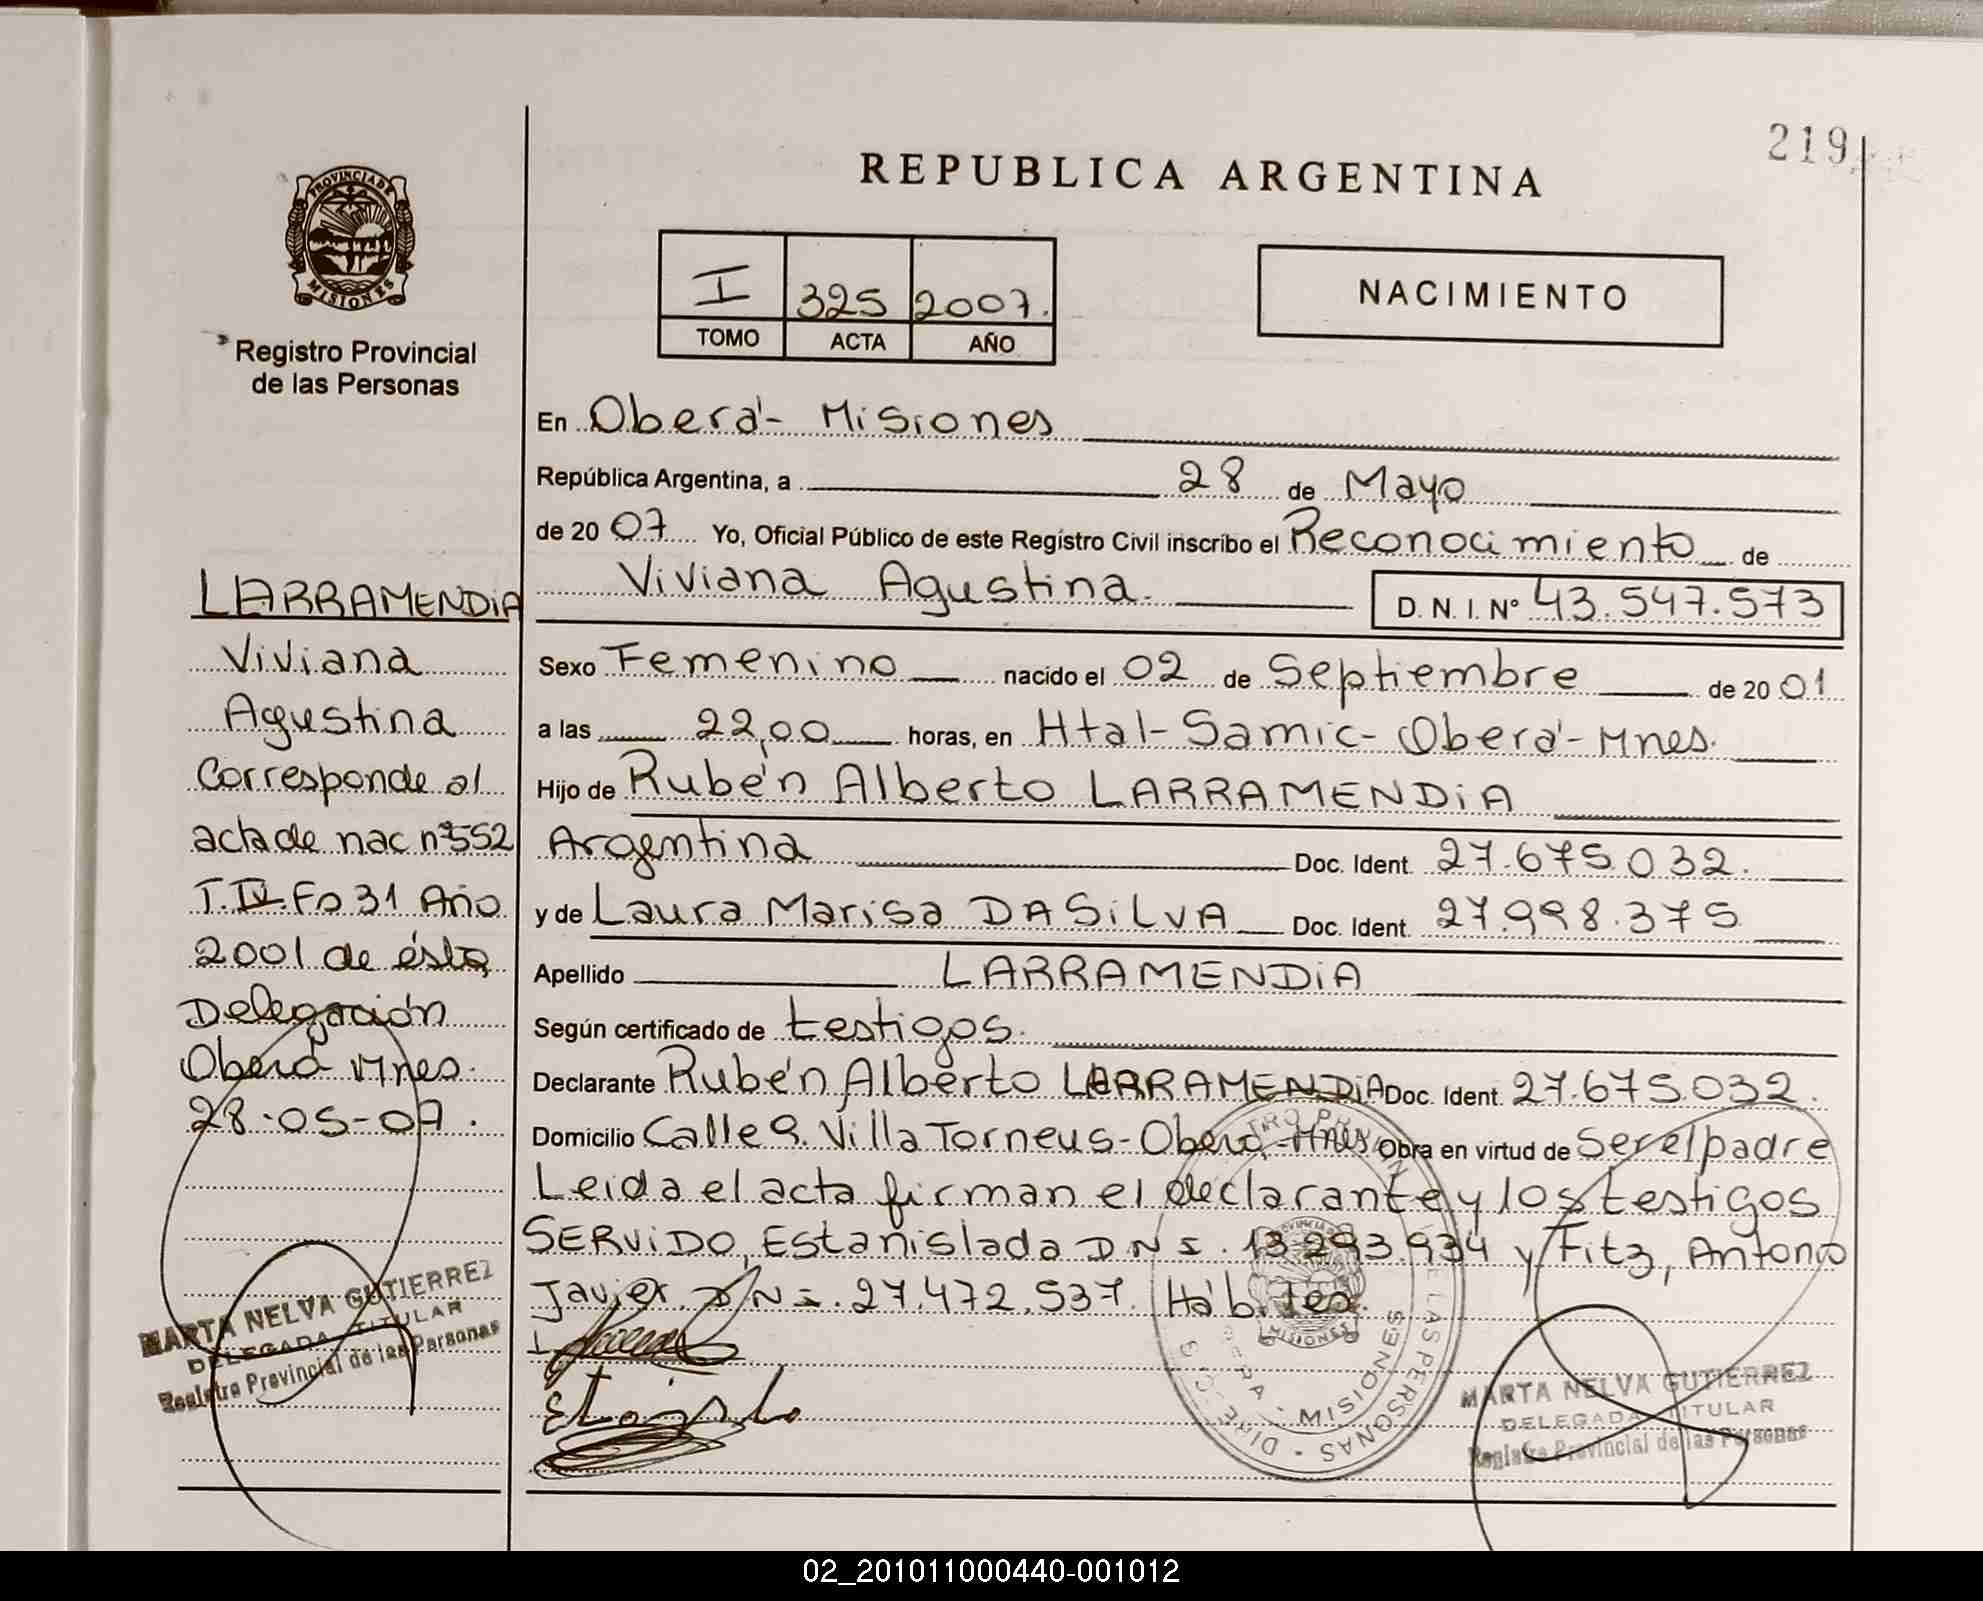 219
REPUBLICA ARGENTINA
PROVINCIA DE
MISIONES
Registro Provincial
de las Personas
I 325 2007.
TOMO ACTA AÑO
NACIMIENTO
En Oberá - Misiones
República Argentina, a 28 de Mayo
de 20 07 Yo, Oficial Público de este Registro Civil inscribo el Reconocimiento de
Viviana Agustina. D. N. I. Nº 43.547.573
Sexo Femenino nacido el 02 de Septiembre de 20 01
a las 22,00 horas, en Htal - Samic - Oberá - Mnes.
Hijo de Rubén Alberto LARRAMENDiA
Argentina Doc. Ident. 27.675.032.
y de Laura Marisa DASiLVA Doc. Ident. 27.998.375
Apellido LARRAMENDiA
Según certificado de testigos.
Declarante Rubén Alberto LARRAMENDiA Doc. Ident. 27.675.032.
Domicilio Calle 9. Villa Torneus - Oberá - Mnes Obra en virtud de Ser el padre
Leida el acta firman el declarante y los testigos
SERViDO, Estanislada D N I. 13 293.934 y Fitz, Antonio
Javier D N I. 27.472.537. Hábiles.
LARRAMENDiA
Viviana
Agustina
Corresponde al
acta de nac nº 552
T. IV. Fº 31 Año
2001 de ésta
Delegación
Oberá Mnes.
28-05-07.
MARTA NELVA GUTIERREZ
DELEGADA TITULAR
Registro Provincial de las Personas
MARTA NELVA GUTIERREZ
DELEGADA TITULAR
Registro Provincial de las Personas
DE LAS PERSONAS
MISIONES
02_201011000440-001012